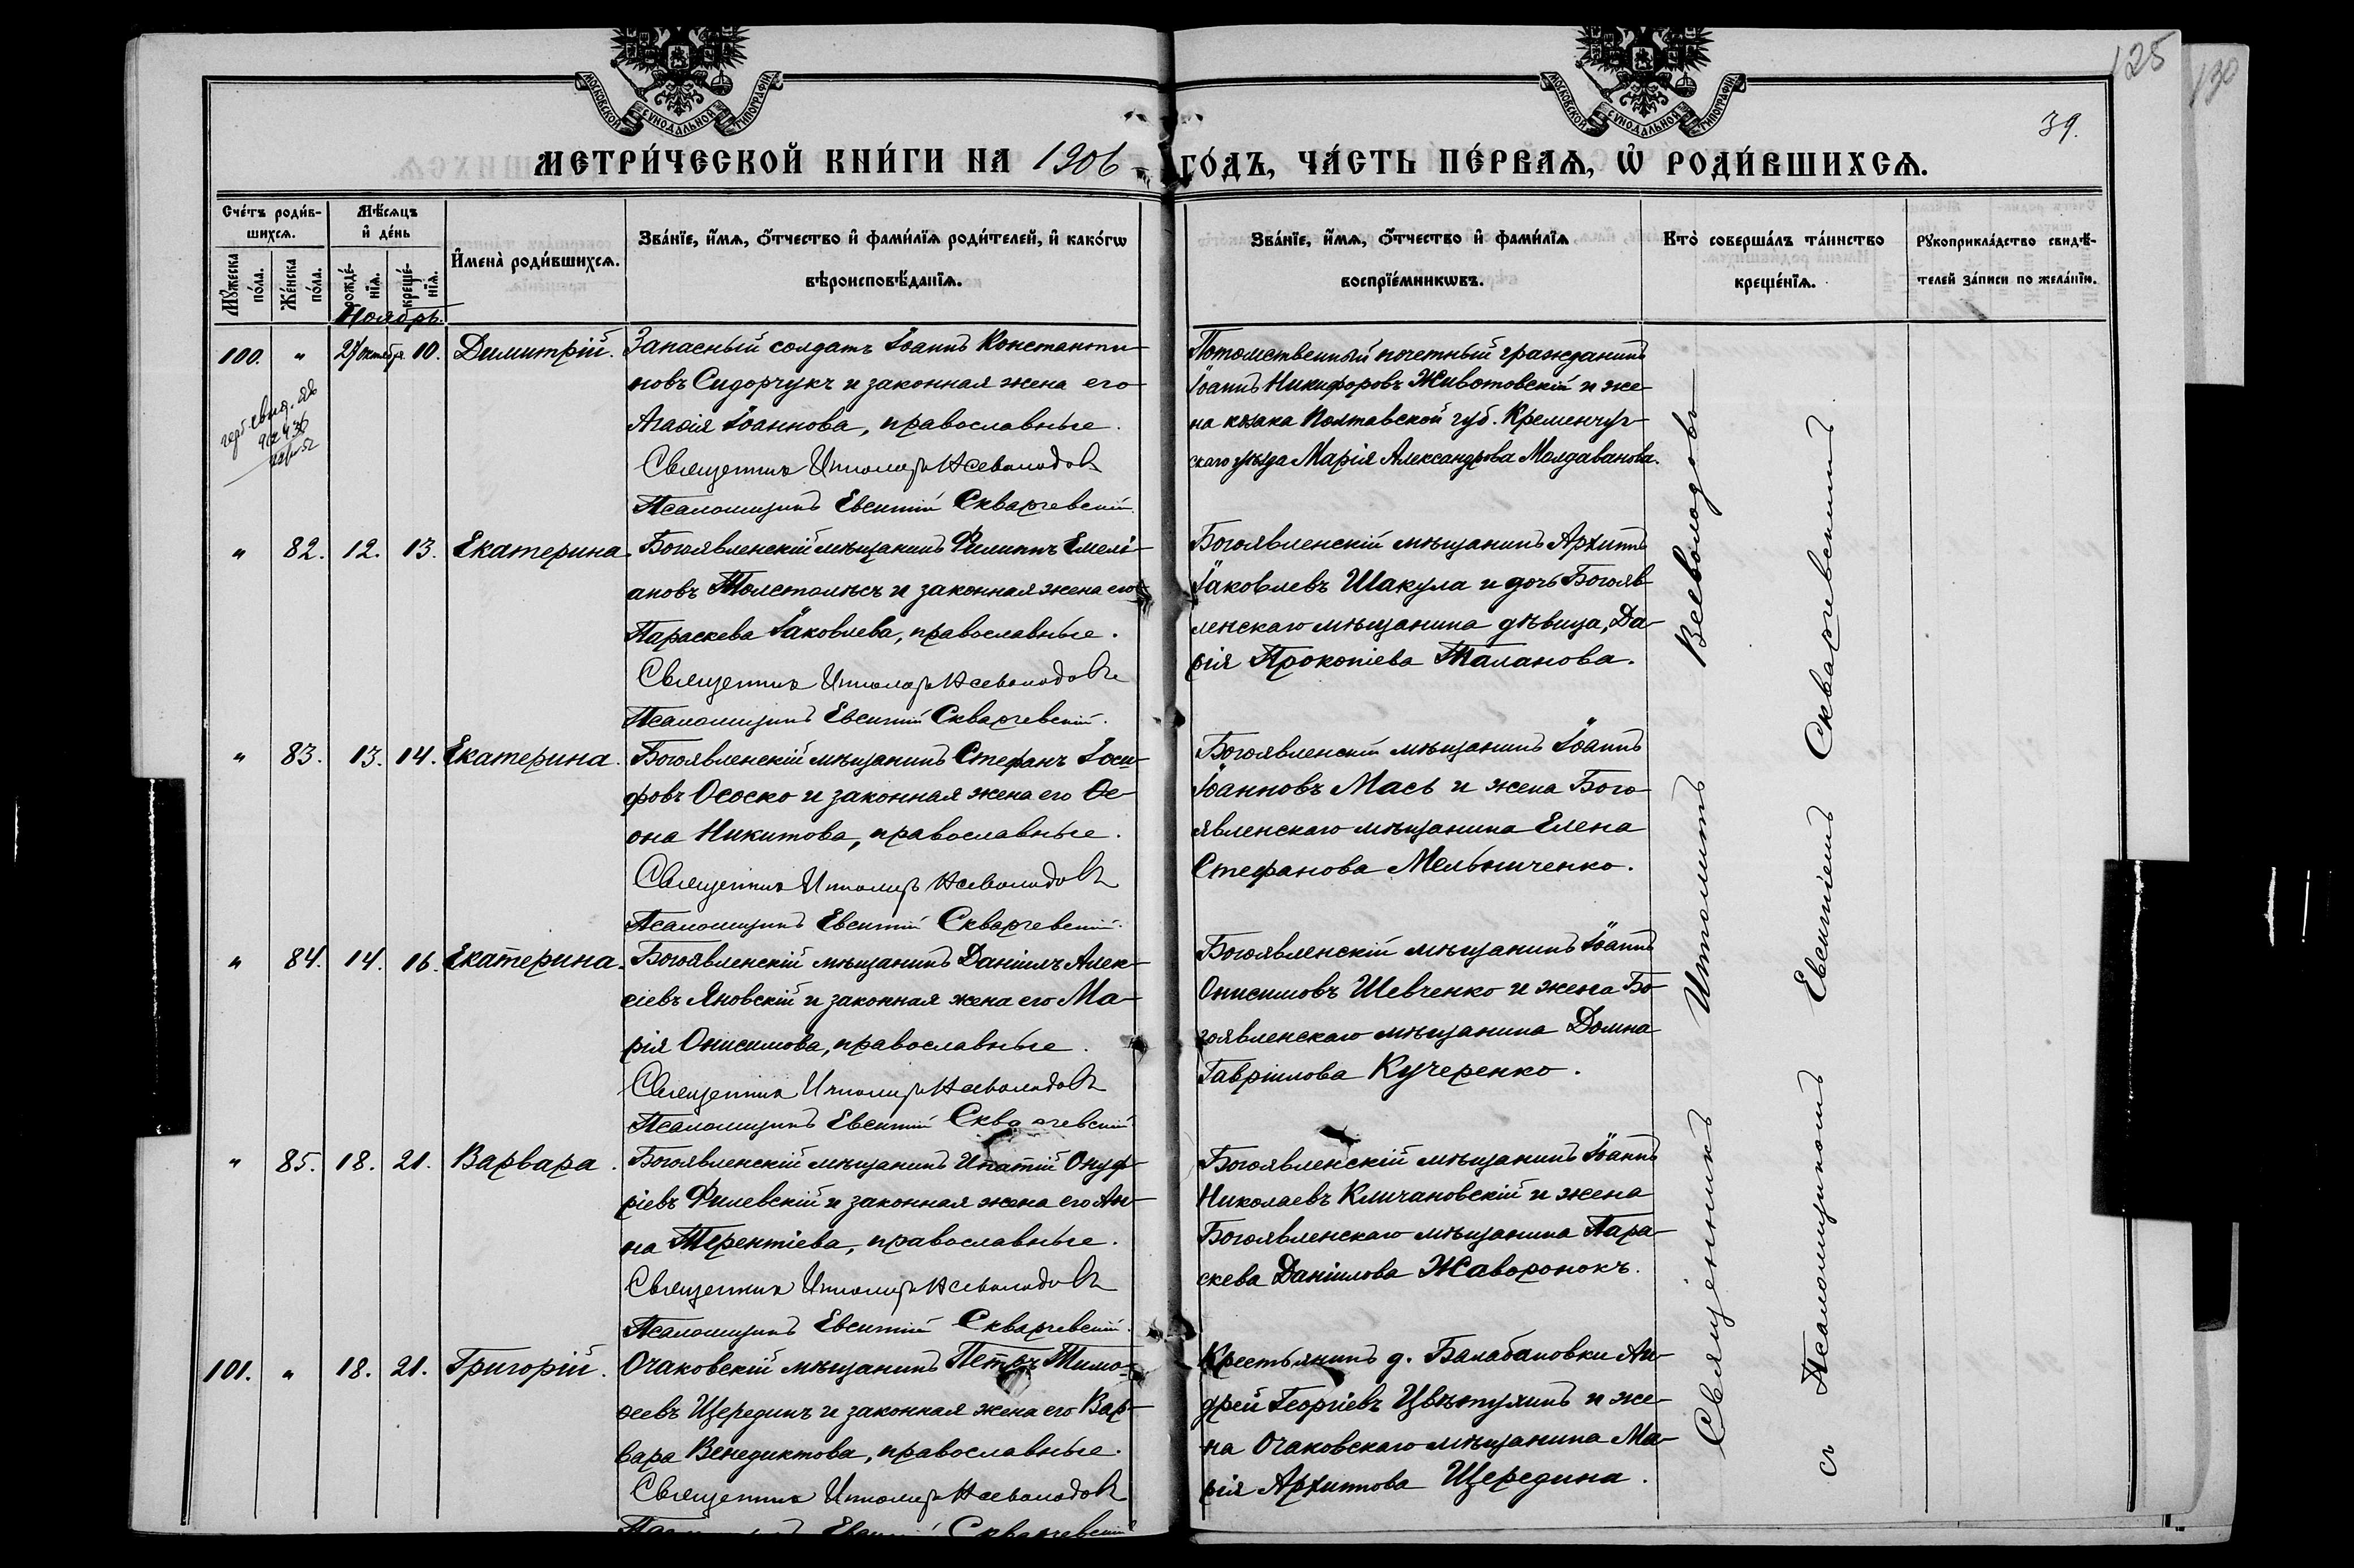 125
130
39.
МОСКОВСКОЙ СΥНОДАЛЬНОЙ ТИПОГРАФІИ
МОСКОВСКОЙ СΥНОДАЛЬНОЙ ТИПОГРАФІИ
МЕТРИ́ЧЕСКОЙ КНИ́ГИ НА 1906 ГО́ДЪ, ЧА́СТЬ ПЕ́РВАѦ, Ѡ҆ РОДИ́ВШИХСѦ.
Сче́тъ роди́в-
шихсѧ.
Мꙋ́жеска по́ла.
Же́нска по́ла.
Мѣ́сѧцъ
и҆ де́нь
рожде́-нїѧ.
креще́-нїѧ.
И҆мена̀ роди́вшихсѧ.
Зва́нїе, и҆́мѧ, ѻ҆́тчество и҆ фами́лїѧ роди́телей, и҆ како́гѡ
вѣроисповѣ́данїѧ.
Зва́нїе, и҆́мѧ, ѻ҆́тчество и҆ фами́лїѧ
воспрїе́мникѡвъ.
Кто̀ соверша́лъ та́инство
креще́нїѧ.
Рꙋкоприкла́дство свидѣ́-
телей за́писи по жела́нїю.
Ноябрь.
100. " 27 октября 10. Димитрій.
Запасный солдатъ Іоаннъ Константи-
новъ Сидорчукъ и законная жена его
Агаѳія Іоаннова, православные.
Священникъ Ипполитъ Всеволодовъ
Псаломщикъ Евсигній Скваржевскій.
Потомственный почетный гражданинъ
Іоаннъ Никифоровъ Животовскій и же-
на козака Полтавской губ. Кременчуг-
скаго уѣзда Марія Александрова Молдаванова.
" 82. 12. 13. Екатерина.
Богоявленскій мѣщанинъ Филиппъ Емелі-
ановъ Толстолѣсъ и законная жена его
Параскева Іаковлева, православные.
Священникъ Ипполитъ Всеволодовъ
Псаломщикъ Евсигній Скваржевскій.
Богоявленскій мѣщанинъ Архиппъ
Іаковлевъ Шакула и дочь Богояв-
ленскаго мѣщанина дѣвица, Да-
рія Прокопіева Таланова.
" 83. 13. 14. Екатерина.
Богоявленскій мѣщанинъ Стефанъ Іоси-
фовъ Ососко и законная жена его Ѳе-
она Никитова, православные.
Священникъ Ипполитъ Всеволодовъ
Псаломщикъ Евсигній Скваржевскій.
Богоявленскій мѣщанинъ Іоаннъ
Іоанновъ Мась и жена Бого-
явленскаго мѣщанина Елена
Стефанова Мельниченко.
" 84. 14. 16. Екатерина.
Богоявленскій мѣщанинъ Даніилъ Алек-
сіевъ Яновскій и законная жена его Ма-
рія Онисимова, православные.
Священникъ Ипполитъ Всеволодовъ
Псаломщикъ Евсигній Скваржевскій
Богоявленскій мѣщанинъ Іоаннъ
Онисимовъ Шевченко и жена Бо-
гоявленскаго мѣщанина Домна
Гавріилова Кучеренко.
" 85. 18. 21. Варвара.
Богоявленскій мѣщанинъ Ипатій Онуф-
ріевъ Филевскій и законная жена его Ан-
на Терентіева, православные.
Священникъ Ипполитъ Всеволодовъ
Псаломщикъ Евсигній Скваржевскій.
Богоявленскій мѣщанинъ Іоаннъ
Николаевъ Кличановскій и жена
Богоявленскаго мѣщанина Пара-
скева Даніилова Жаворонокъ.
101. " 18. 21. Григорій.
Очаковскій мѣщанинъ Петръ Тимо-
ѳеевъ Щерединъ и законная жена его Вар-
вара Венедиктова, православные.
Священникъ Ипполитъ Всеволодовъ
Псаломщикъ Евсигній Скваржевскій
Крестьянинъ д. Балабановки Ан-
дрей Георгіевъ Цвѣтухинъ и же-
на Очаковскаго мѣщанина Ма-
рія Архиппова Щередина.
Священникъ Ипполитъ Всеволодовъ
съ Псаломщикомъ Евсигніемъ Скваржевскимъ.